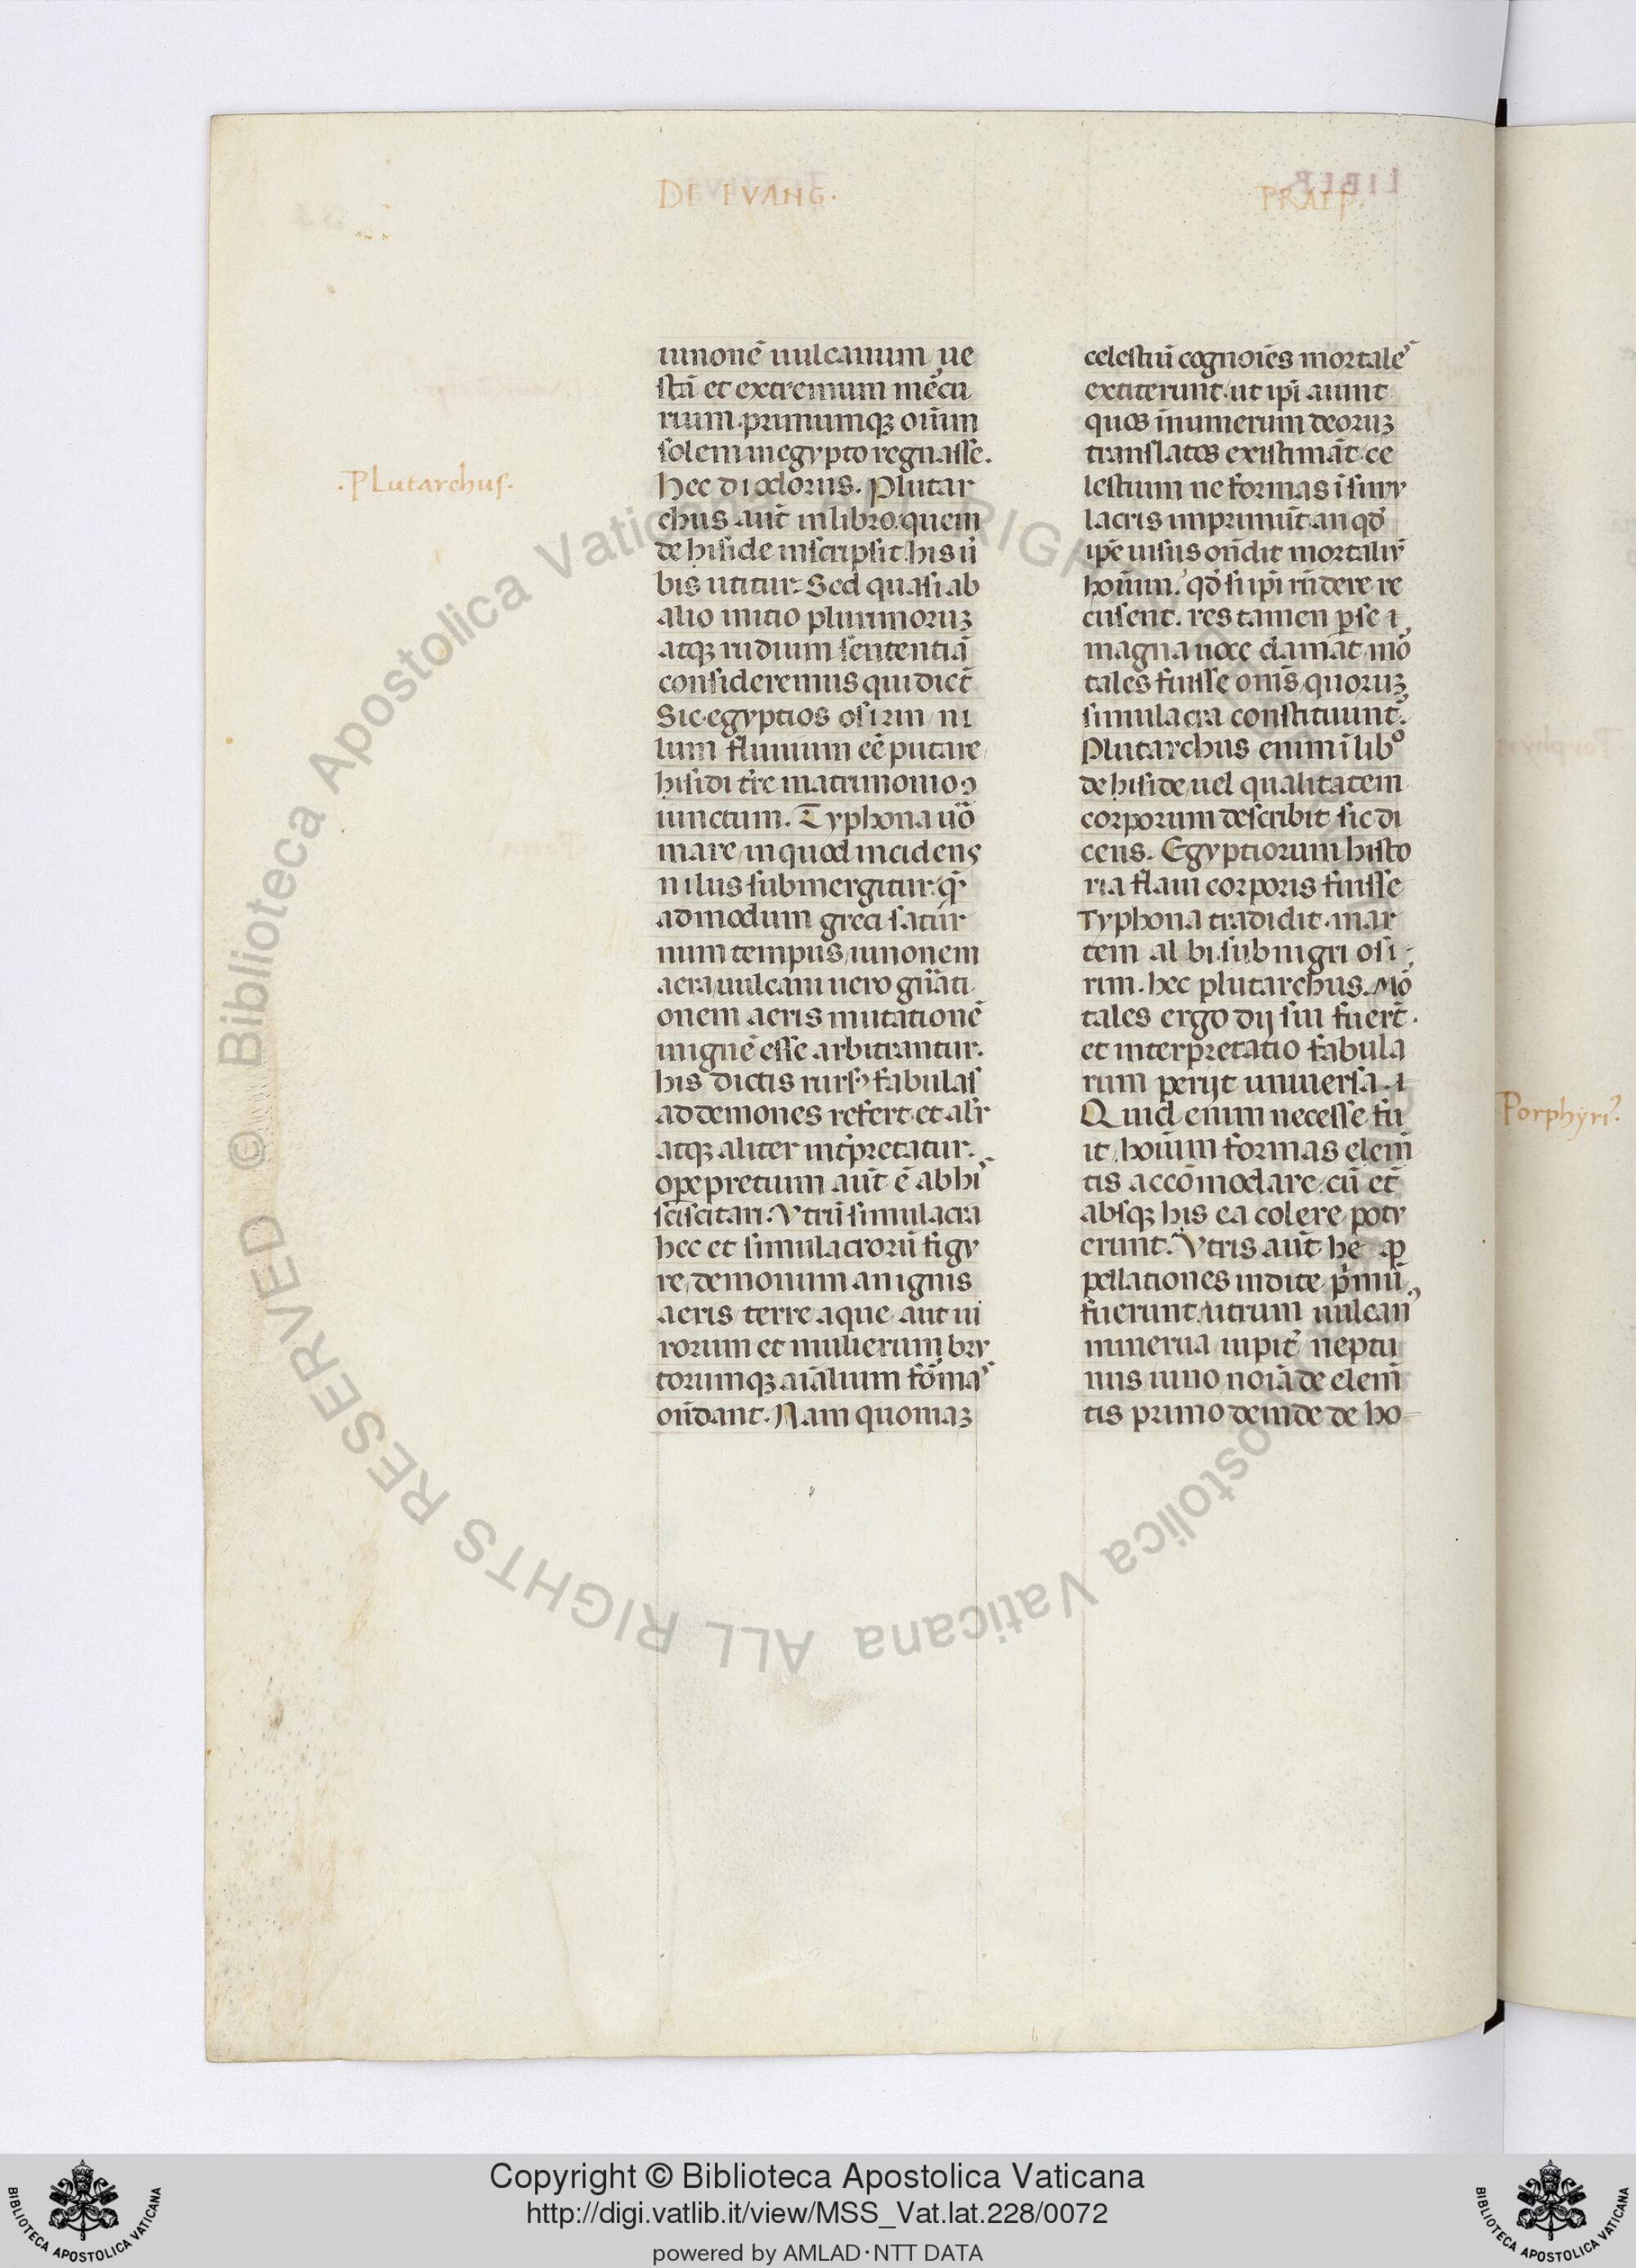 DE EVANG.
PRAEP.
LIBER
.Plutarchus.
iunonē uulcanum ue
stā et extremum mēcu
rium. primumqꝫ oīuīm
solem in egypto regnasse.
hec diodorus. Plutar
chus aut̄ in libro. quem
de hiside inscripsit his ū
bis utitur. Sed quasi ab
alio initio plurimoruꝫ
atqꝫ rudium sententiā
consideremus qui dict̄
Sic egyptios osirin ni
lum fluuium eē putare
hisidi tr̄e matrimonio ↄ
iunctum. Typhona uō
mare in quod incidens
nilus submergitur. q̄
admodum greci satur
num tempus iunonem
aera uulcani uero gn̄ati
onem aeris mutationē
in ignē esse arbitrantur.
his dictis rursꝰ fabulas
ad demones refert et alr̄
atqꝫ aliter int̄pretatur.
ope pretium aut̄ ē ab hiˢ
sciscitari. Vtrū simulacra
hec et simulacrorū figu
re demonum an ignis
aeris terre aque aut ui
rorum et mulierum bru
torumqꝫ aīalium fōmaˢ
on̄dant. Nam quoniaꝫ
celestiū cognoīes mortaleˢ
extiterunt. ut ip̄i aiunt
quos in numerum deoruꝫ
translatos existimāt. ce
lestium ne formas ī simu
lacris imprimūt. an qď
ip̄e uisus on̄dit mortaliū
hoīum. qď si ip̄i rn̄dere re
cusent. res tamen per se ⁊
magna uoce clamat. mō
tales fuisse om̄s quoruꝫ
simulacra constituunt.
Plutarchus enim ī libº
de hiside uel qualitatem
corporum describit sic di
cens. Egyptiorum histo
ria flaui corporis fuisse
Typhona tradidit. mar
tem albi. subnigri osi
rim. hec plutarchus. Mō
tales ergo dij sui fuert̄.
et interpretatio fabula
rum perijt uniuersa. ⁊
Quid enim necesse fu
it hoīum formas elem̄
tis accōmodare. cū et̄
absqꝫ his ea colere potu
erunt. Vtris aut̄ he ap
pellationes indite p̄mū
fuerunt. utrum uulcanꝰ
minerua iupit̄ neptu
nus iuno noīa de elem̄
tis primo deinde de ho
Porphyriꝰ.
© Biblioteca Apostolica Vaticana ALL RIGHTS RESERVED
Copyright © Biblioteca Apostolica Vaticana
http://digi.vatlib.it/view/MSS_Vat.lat.228/0072
powered by AMLAD·NTT DATA
BIBLIOTECA APOSTOLICA VATICANA
BIBLIOTECA APOSTOLICA VATICANA